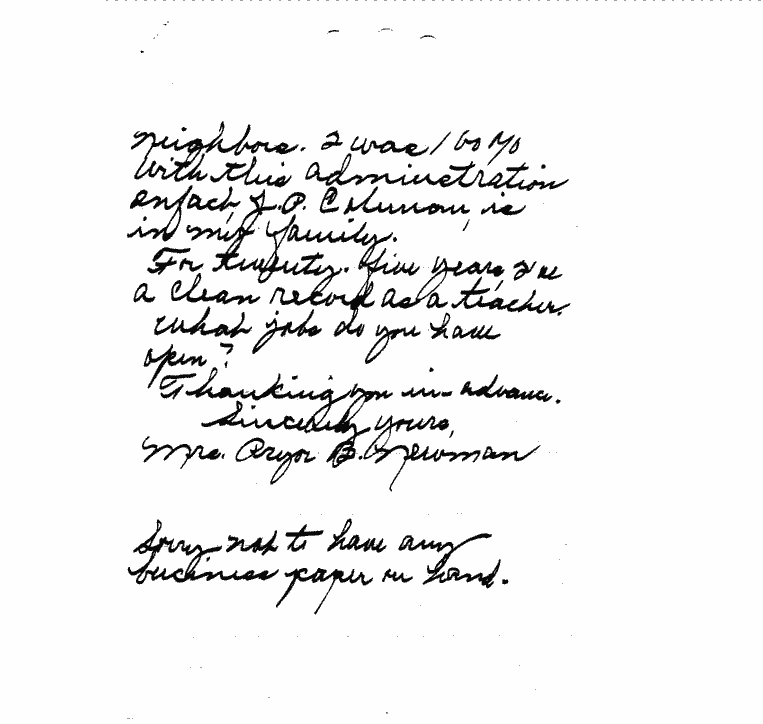 neighbors. I was 100%
with this administration
enfact, J.P. Coleman, is
in my family.
For twenty-five years, I've
a clean record as a teacher.
What jobs do you have
open?
Thanking you in-advance.
Sincerely yours,
Mrs. Pryor B. Newman
Sorry not to have any
business paper on hand.